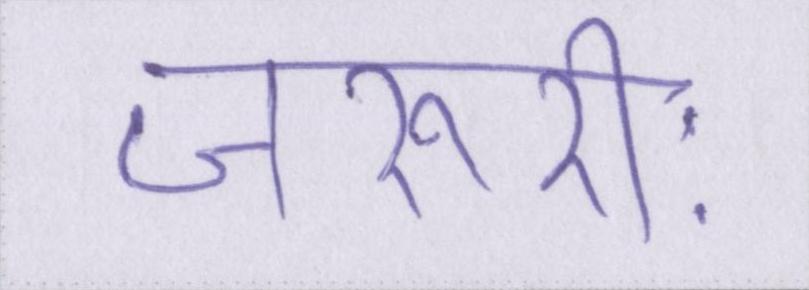 जरूरीः